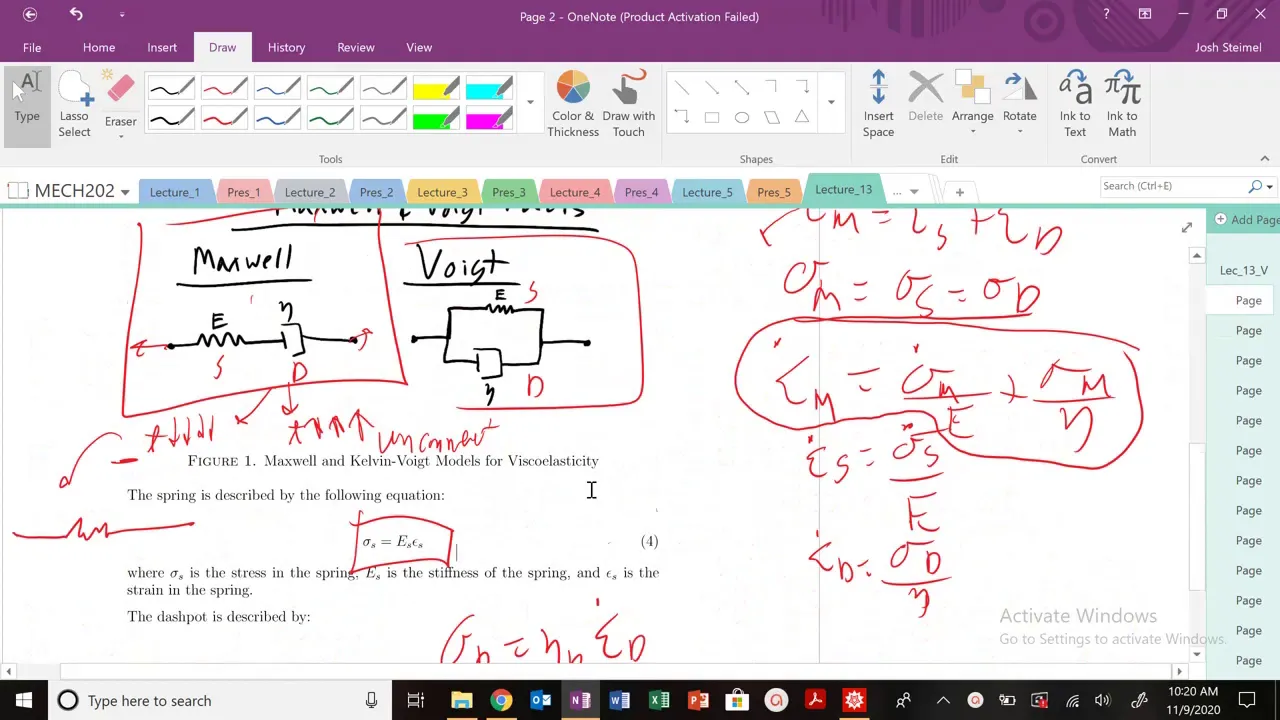 Page 2 - OneNote (Product Activation Failed)
?
File Home Insert Draw History Review View Josh Steimel
Type Lasso Select Eraser Color & Thickness Draw with Touch Insert Space Delete Arrange Rotate Ink to Text Ink to Math
Tools Shapes Edit Convert
MECH202 Lecture_1 Pres_1 Lecture_2 Pres_2 Lecture_3 Pres_3 Lecture_4 Pres_4 Lecture_5 Pres_5 Lecture_13 ... Search (Ctrl+E)
Add Page
Lec_13_V
Page
Page
Page
Page
Page
Page
Page
Page
Page
Page
Page
Page
Page
Maxwell
E η
S D
Voigt
E S
η D
t↓↓↓↓ t↑↑↑↑
FIGURE 1. Maxwell and Kelvin-Voigt Models for Viscoelasticity
The spring is described by the following equation:
σₛ = Eₛϵₛ (4)
where σₛ is the stress in the spring, Eₛ is the stiffness of the spring, and ϵₛ is the
strain in the spring.
The dashpot is described by:
σ_D = η_D ε̇_D
ε_M = ε_S + ε_D
σ_M = σ_S = σ_D
ε̇_M = σ̇_M/E + σ_M/η
ε̇_S = σ̇_S/E
ε̇_D = σ_D/η
Activate Windows
Go to Settings to activate Windows.
Type here to search
10:20 AM
11/9/2020